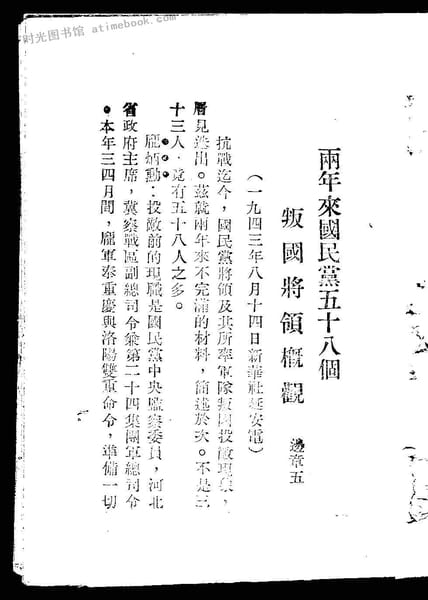 时光图书馆 atimebook.com
兩年來國民黨五十八個
叛國將領概觀 邊章五
(一九四三年八月十四日新華社延安電)
抗戰迄今，國民黨將領及其所率軍隊叛國投敵現象，
層見迭出。茲就兩年來不完滿的材料，簡述於次。不是三
十三人，竟有五十八人之多。
龐炳勳：投敵前的現職是國民黨中央監察委員，河北
省政府主席，冀察戰區副總司令兼第二十四集團軍總司令
。本年三四月間，龐軍奉重慶與洛陽雙重命令，準備一切